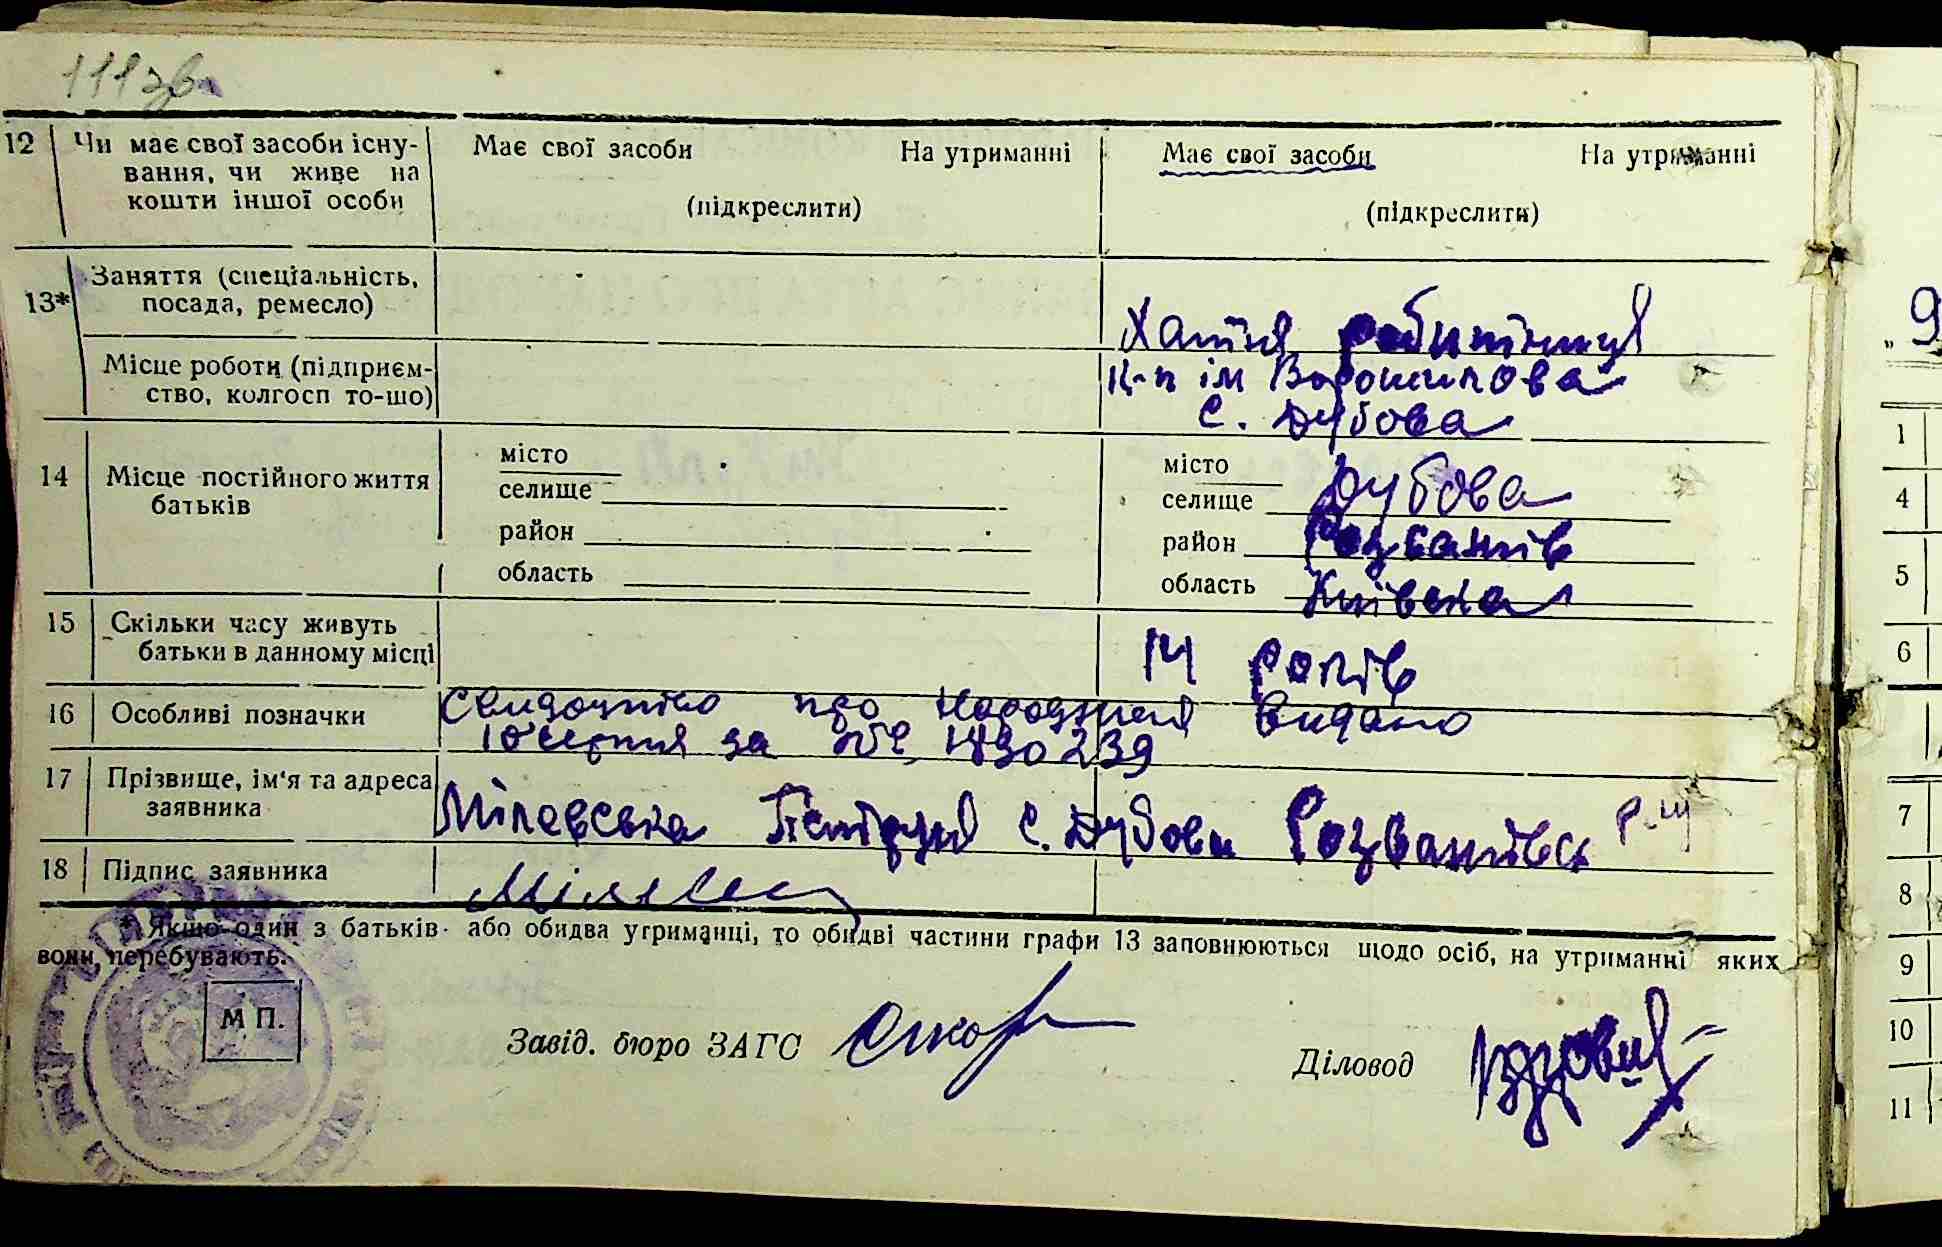 111зв.
12 Чи має свої засоби існу- Має свої засоби На утриманні Має свої засоби На утриманні
вання, чи живе на
кошти іншої особи (підкреслити) (підкреслити)
13* Заняття (спеціальність,
посада, ремесло) Хатня робітниця
Місце роботи (підприєм- К-п ім Ворошилова
ство, колгосп то-що) с. Дубова
14 Місце постійного життя
батьків
місто місто
селище селище Дубова
район район Розважів
область область Київська
15 Скільки часу живуть
батьки в данному місці 14 років
16 Особливі позначки Свидоцтво про народження видано
10 серпня за № 1430239
17 Прізвище, ім'я та адреса
заявника Мілевська с. Дубова Розважівськ р-ну
18 Підпис заявника
* Якщо один з батьків або обидва утриманці, то обидві частини графи 13 заповнюються щодо осіб, на утриманні яких
вони перебувають.
М П.
Завід. бюро ЗАГС
Діловод
9
1
4
5
6
7
8
9
10
11